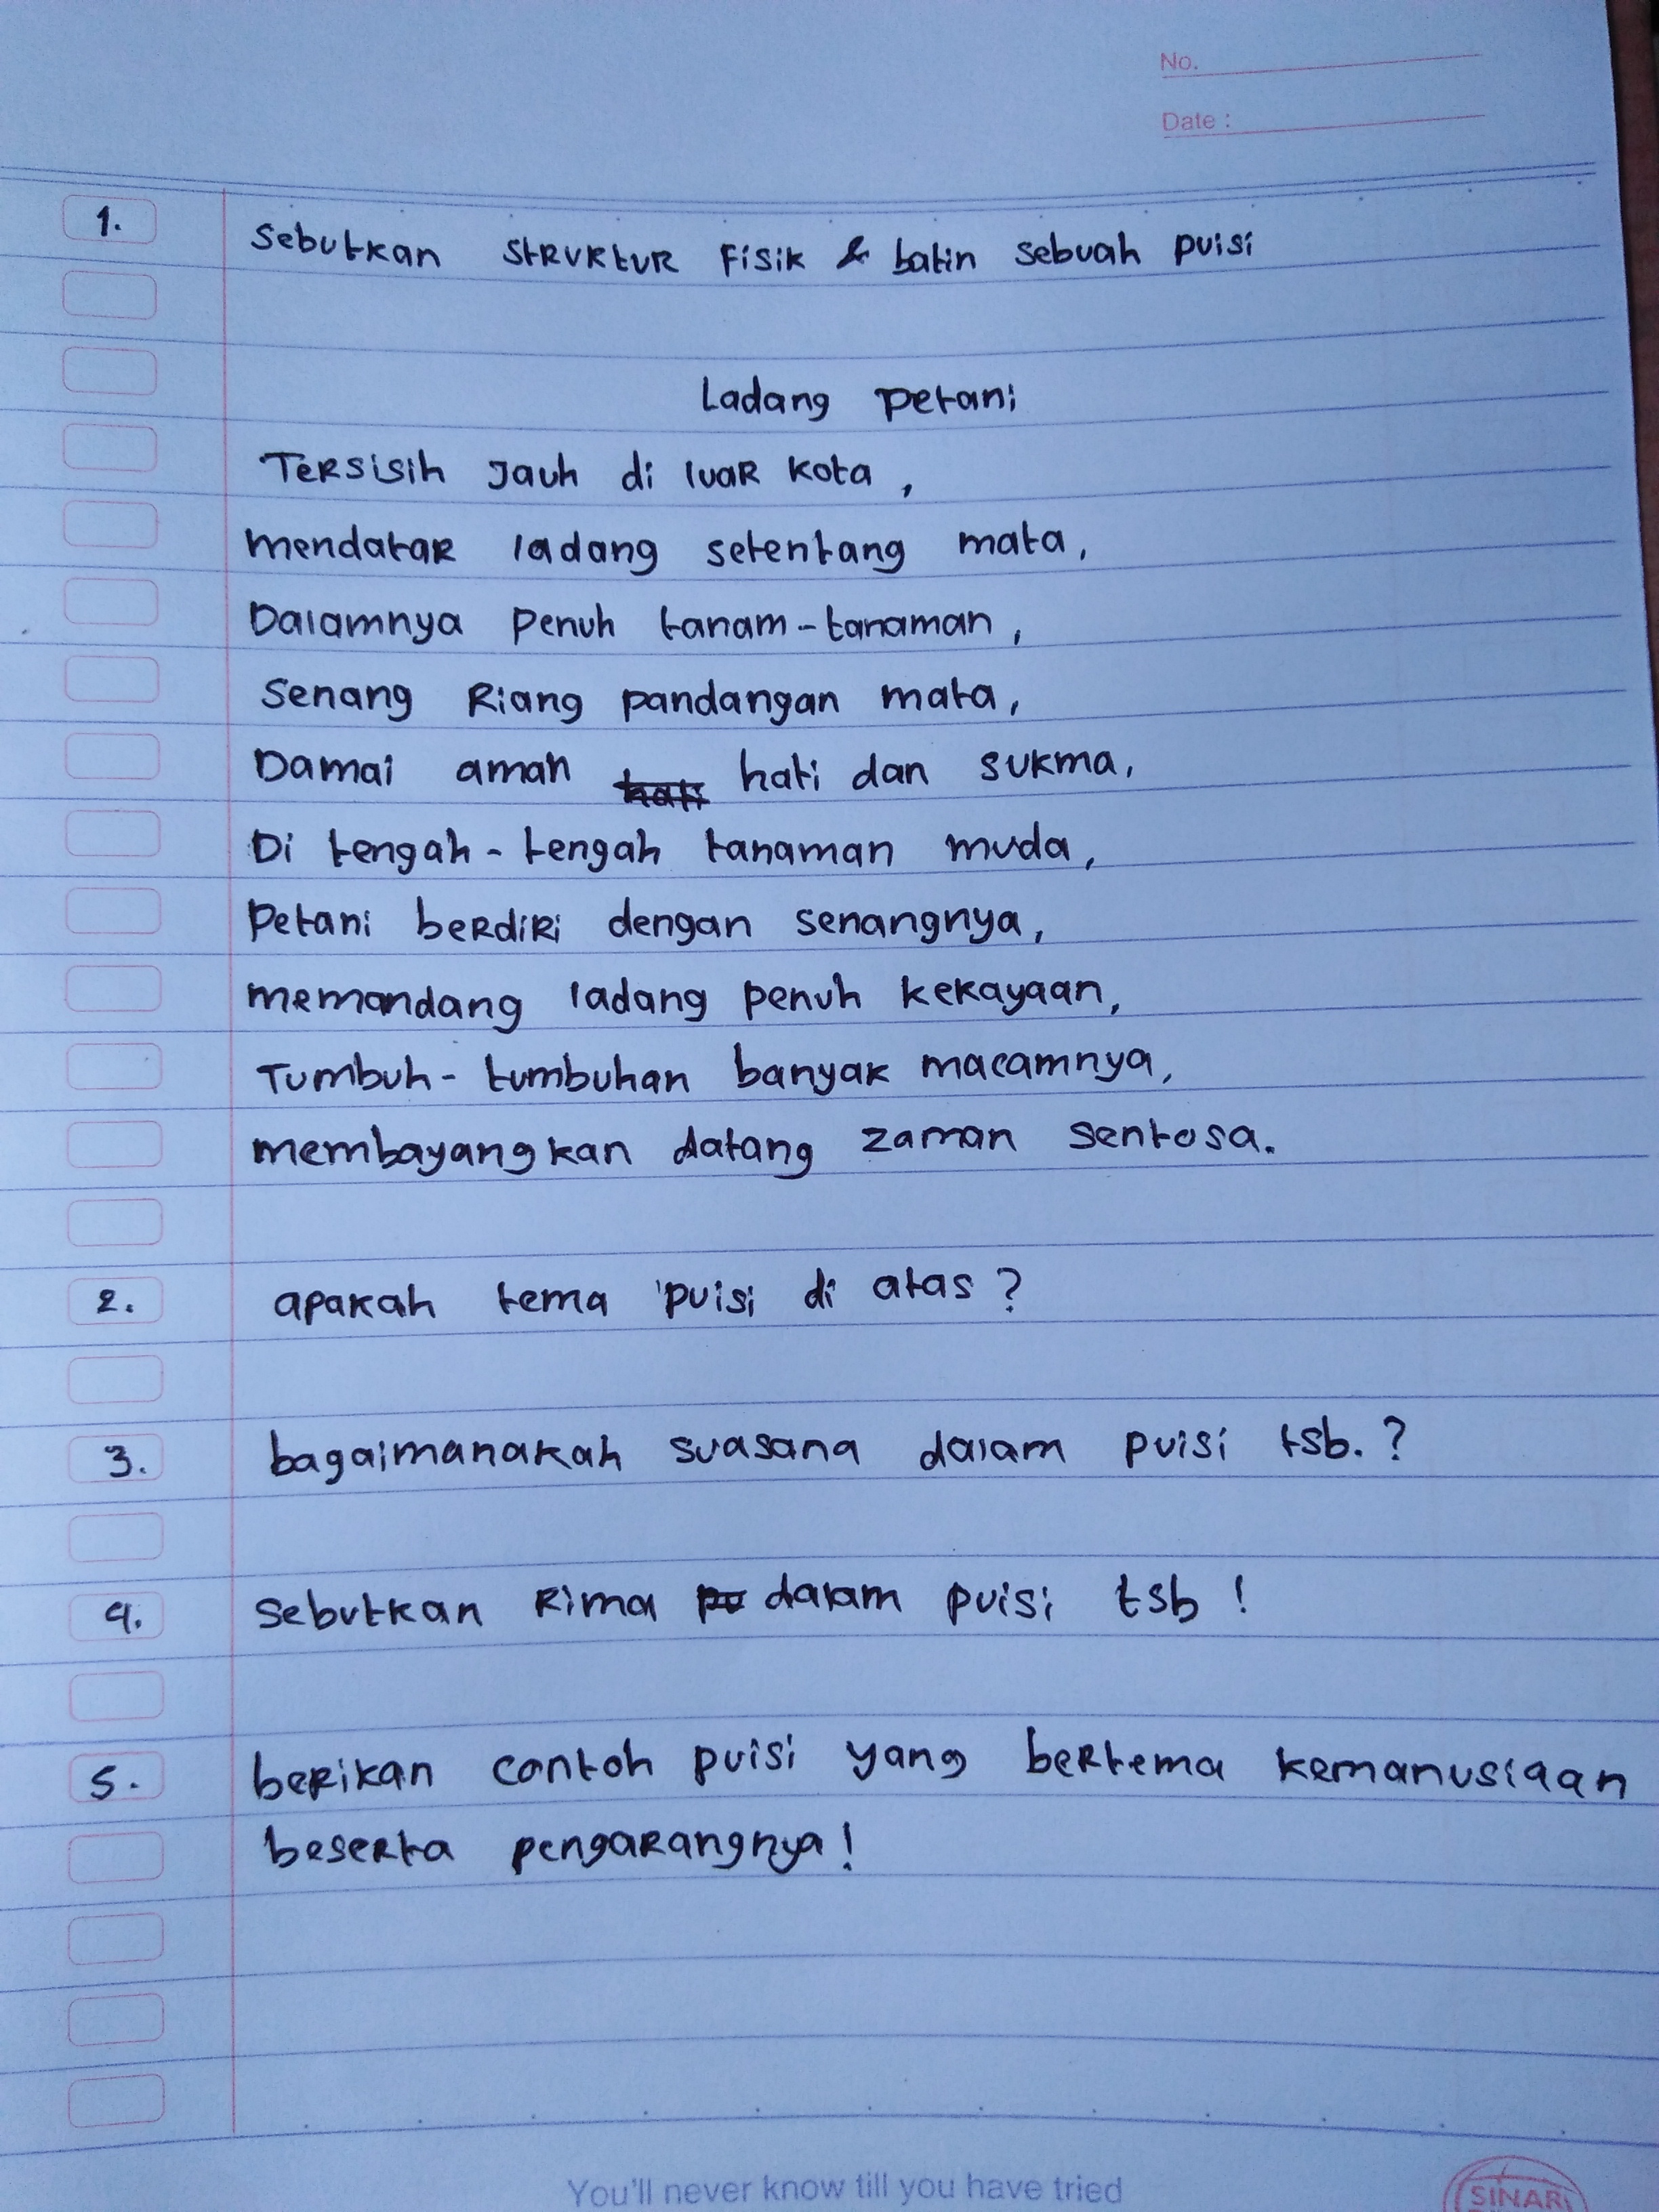 No.
Date :
1. Sebutkan struktur fisik & batin sebuah puisi
Ladang petani
Tersisih Jauh di luar kota,
mendatar ladang setentang mata,
Dalamnya penuh tanam-tanaman,
Senang Riang pandangan mata,
Damai aman hati dan sukma,
Di tengah-tengah tanaman muda,
Petani berdiri dengan senangnya,
memandang ladang penuh kekayaan,
Tumbuh-tumbuhan banyak macamnya,
membayangkan datang zaman sentosa.
2. apakah tema puisi di atas?
3. bagaimanakah suasana dalam puisi tsb.?
4. Sebutkan Rima dalam puisi tsb!
5. berikan contoh puisi yang bertema kemanusiaan
beserta pengarangnya!
You'll never know till you have tried
SINAR